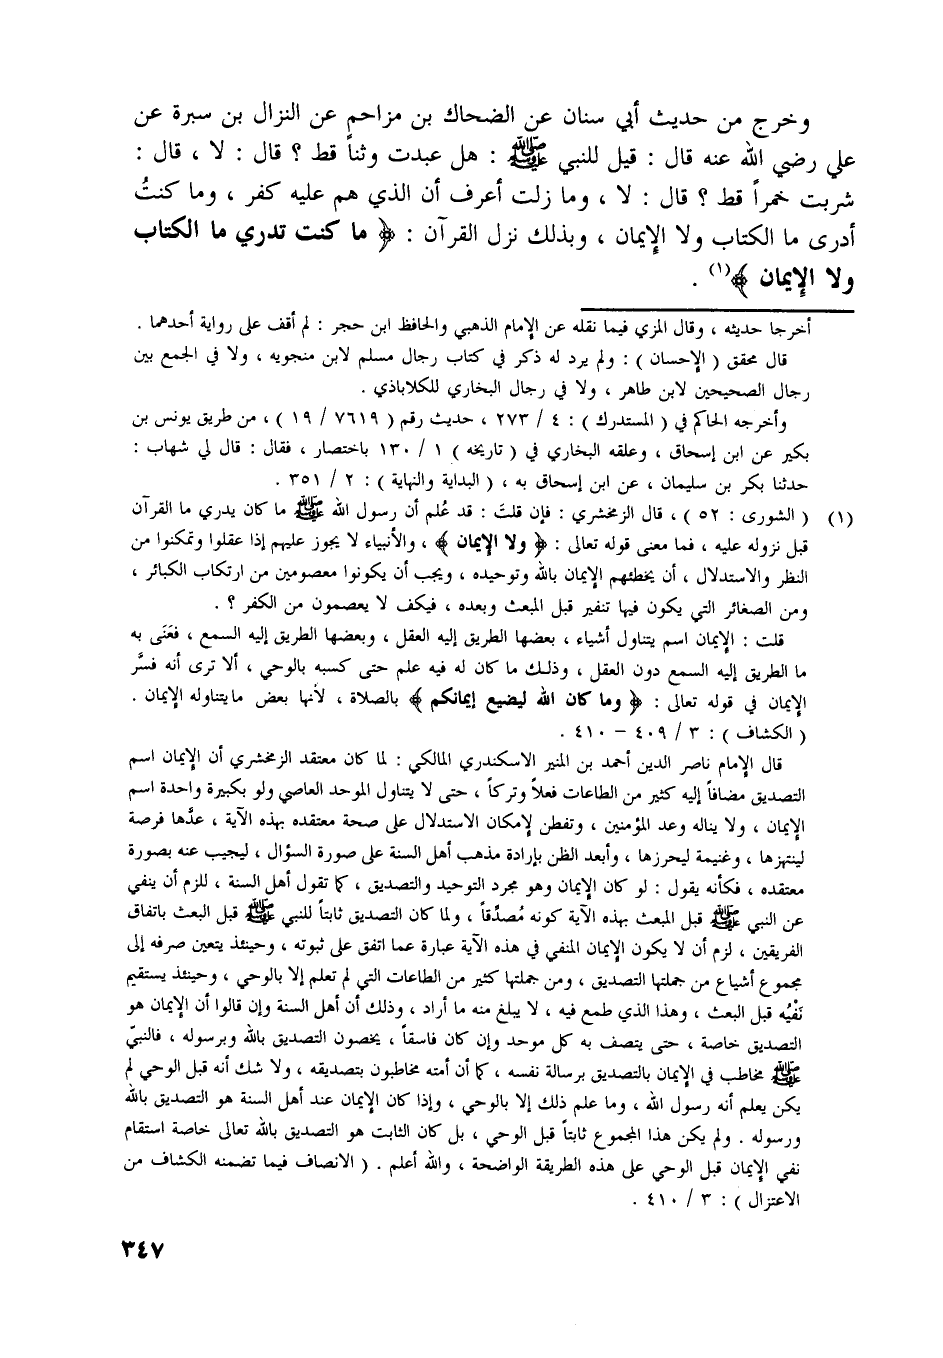 وخرج من حديث أبي سنان عن الضحاك بن مزاحم عن النزال بن سبرة عن
علي رضي الله عنه قال : قيل للنبي ﷺ : هل عبدت وثناً قط ؟ قال : لا ، قال :
شربت خمراً قط ؟ قال : لا ، وما زلت أعرف أن الذي هم عليه كفر ، وما كنتُ
أدرى ما الكتاب ولا الإيمان ، وبذلك نزل القرآن : ﴿ ما كنت تدري ما الكتاب
ولا الإيمان ﴾(١) .
أخرجا حديثه ، وقال المزي فيما نقله عن الإمام الذهبي والحافظ ابن حجر : لم أقف على رواية أحدهما .
قال محقق ( الإحسان ) : ولم يرد له ذكر في كتاب رجال مسلم لابن منجويه ، ولا في الجمع بين
رجال الصحيحين لابن طاهر ، ولا في رجال البخاري للكلاباذي .
وأخرجه الحاكم في ( المستدرك ) : ٤ / ٢٧٣ ، حديث رقم ( ٧٦١٩ / ١٩ ) ، من طريق يونس بن
بكير عن ابن إسحاق ، وعلقه البخاري في ( تاريخه ) ١ / ١٣٠ باختصار ، فقال : قال لي شهاب :
حدثنا بكر بن سليمان ، عن ابن إسحاق به ، ( البداية والنهاية ) : ٢ / ٣٥١ .
(١) ( الشورى : ٥٢ ) ، قال الزمخشري : فإن قلتَ : قد عُلم أن رسول الله ﷺ ما كان يدري ما القرآن
قبل نزوله عليه ، فما معنى قوله تعالى : ﴿ ولا الإيمان ﴾ ، والأنبياء لا يجوز عليهم إذا عقلوا وتمكنوا من
النظر والاستدلال ، أن يخطئهم الإيمان بالله وتوحيده ، ويجب أن يكونوا معصومين من ارتكاب الكبائر ،
ومن الصغائر التي يكون فيها تنفير قبل المبعث وبعده ، فيكف لا يعصمون من الكفر ؟ .
قلت : الإيمان اسم يتناول أشياء ، بعضها الطريق إليه العقل ، وبعضها الطريق إليه السمع ، فعَنَى به
ما الطريق إليه السمع دون العقل ، وذلك ما كان له فيه علم حتى كسبه بالوحي ، ألا ترى أنه فسَّر
الإيمان في قوله تعالى : ﴿ وما كان الله ليضيع إيمانكم ﴾ بالصلاة ، لأنها بعض مايتناوله الإيمان .
( الكشاف ) : ٣ / ٤٠٩ – ٤١٠ .
قال الإمام ناصر الدين أحمد بن المنير الاسكندري المالكي : لما كان معتقد الزمخشري أن الإيمان اسم
التصديق مضافاً إليه كثير من الطاعات فعلاً وتركاً ، حتى لا يتناول الموحد العاصي ولو بكبيرة واحدة اسم
الإيمان ، ولا يناله وعد المؤمنين ، وتفطن لإمكان الاستدلال على صحة معتقده بهذه الآية ، عدَّها فرصة
لينتهزها ، وغنيمة ليحرزها ، وأبعد الظن بإرادة مذهب أهل السنة على صورة السؤال ، ليجيب عنه بصورة
معتقده ، فكأنه يقول : لو كان الإيمان وهو مجرد التوحيد والتصديق ، كما تقول أهل السنة ، للزم أن ينفي
عن النبي ﷺ قبل المبعث بهذه الآية كونه مُصدِّقاً ، ولما كان التصديق ثابتاً للنبي ﷺ قبل البعث باتفاق
الفريقين ، لزم أن لا يكون الإيمان المنفي في هذه الآية عبارة عما اتفق على ثبوته ، وحينئذ يتعين صرفه إلى
مجموع أشياع من جملتها التصديق ، ومن جملتها كثير من الطاعات التي لم تعلم إلا بالوحي ، وحينئذ يستقيم
نَفْيُه قبل البعث ، وهذا الذي طمع فيه ، لا يبلغ منه ما أراد ، وذلك أن أهل السنة وإن قالوا أن الإيمان هو
التصديق خاصة ، حتى يتصف به كل موحد وإن كان فاسقاً ، يخصون التصديق بالله وبرسوله ، فالنبيّ
ﷺ مخاطب في الإيمان بالتصديق برسالة نفسه ، كما أن أمته مخاطبون بتصديقه ، ولا شك أنه قبل الوحي لم
يكن يعلم أنه رسول الله ، وما علم ذلك إلا بالوحي ، وإذا كان الإيمان عند أهل السنة هو التصديق بالله
ورسوله . ولم يكن هذا المجموع ثابتاً قبل الوحي ، بل كان الثابت هو التصديق بالله تعالى خاصة استقام
نفي الإيمان قبل الوحي على هذه الطريقة الواضحة ، والله أعلم . ( الانصاف فيما تضمنه الكشاف من
الاعتزال ) : ٣ / ٤١٠ .
٣٤٧